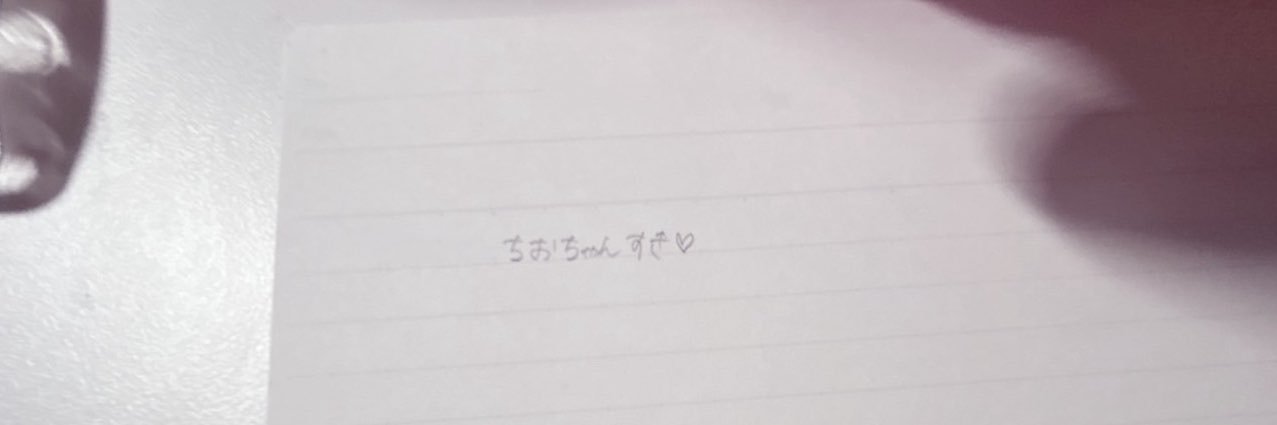 ちおちゃんすき♡